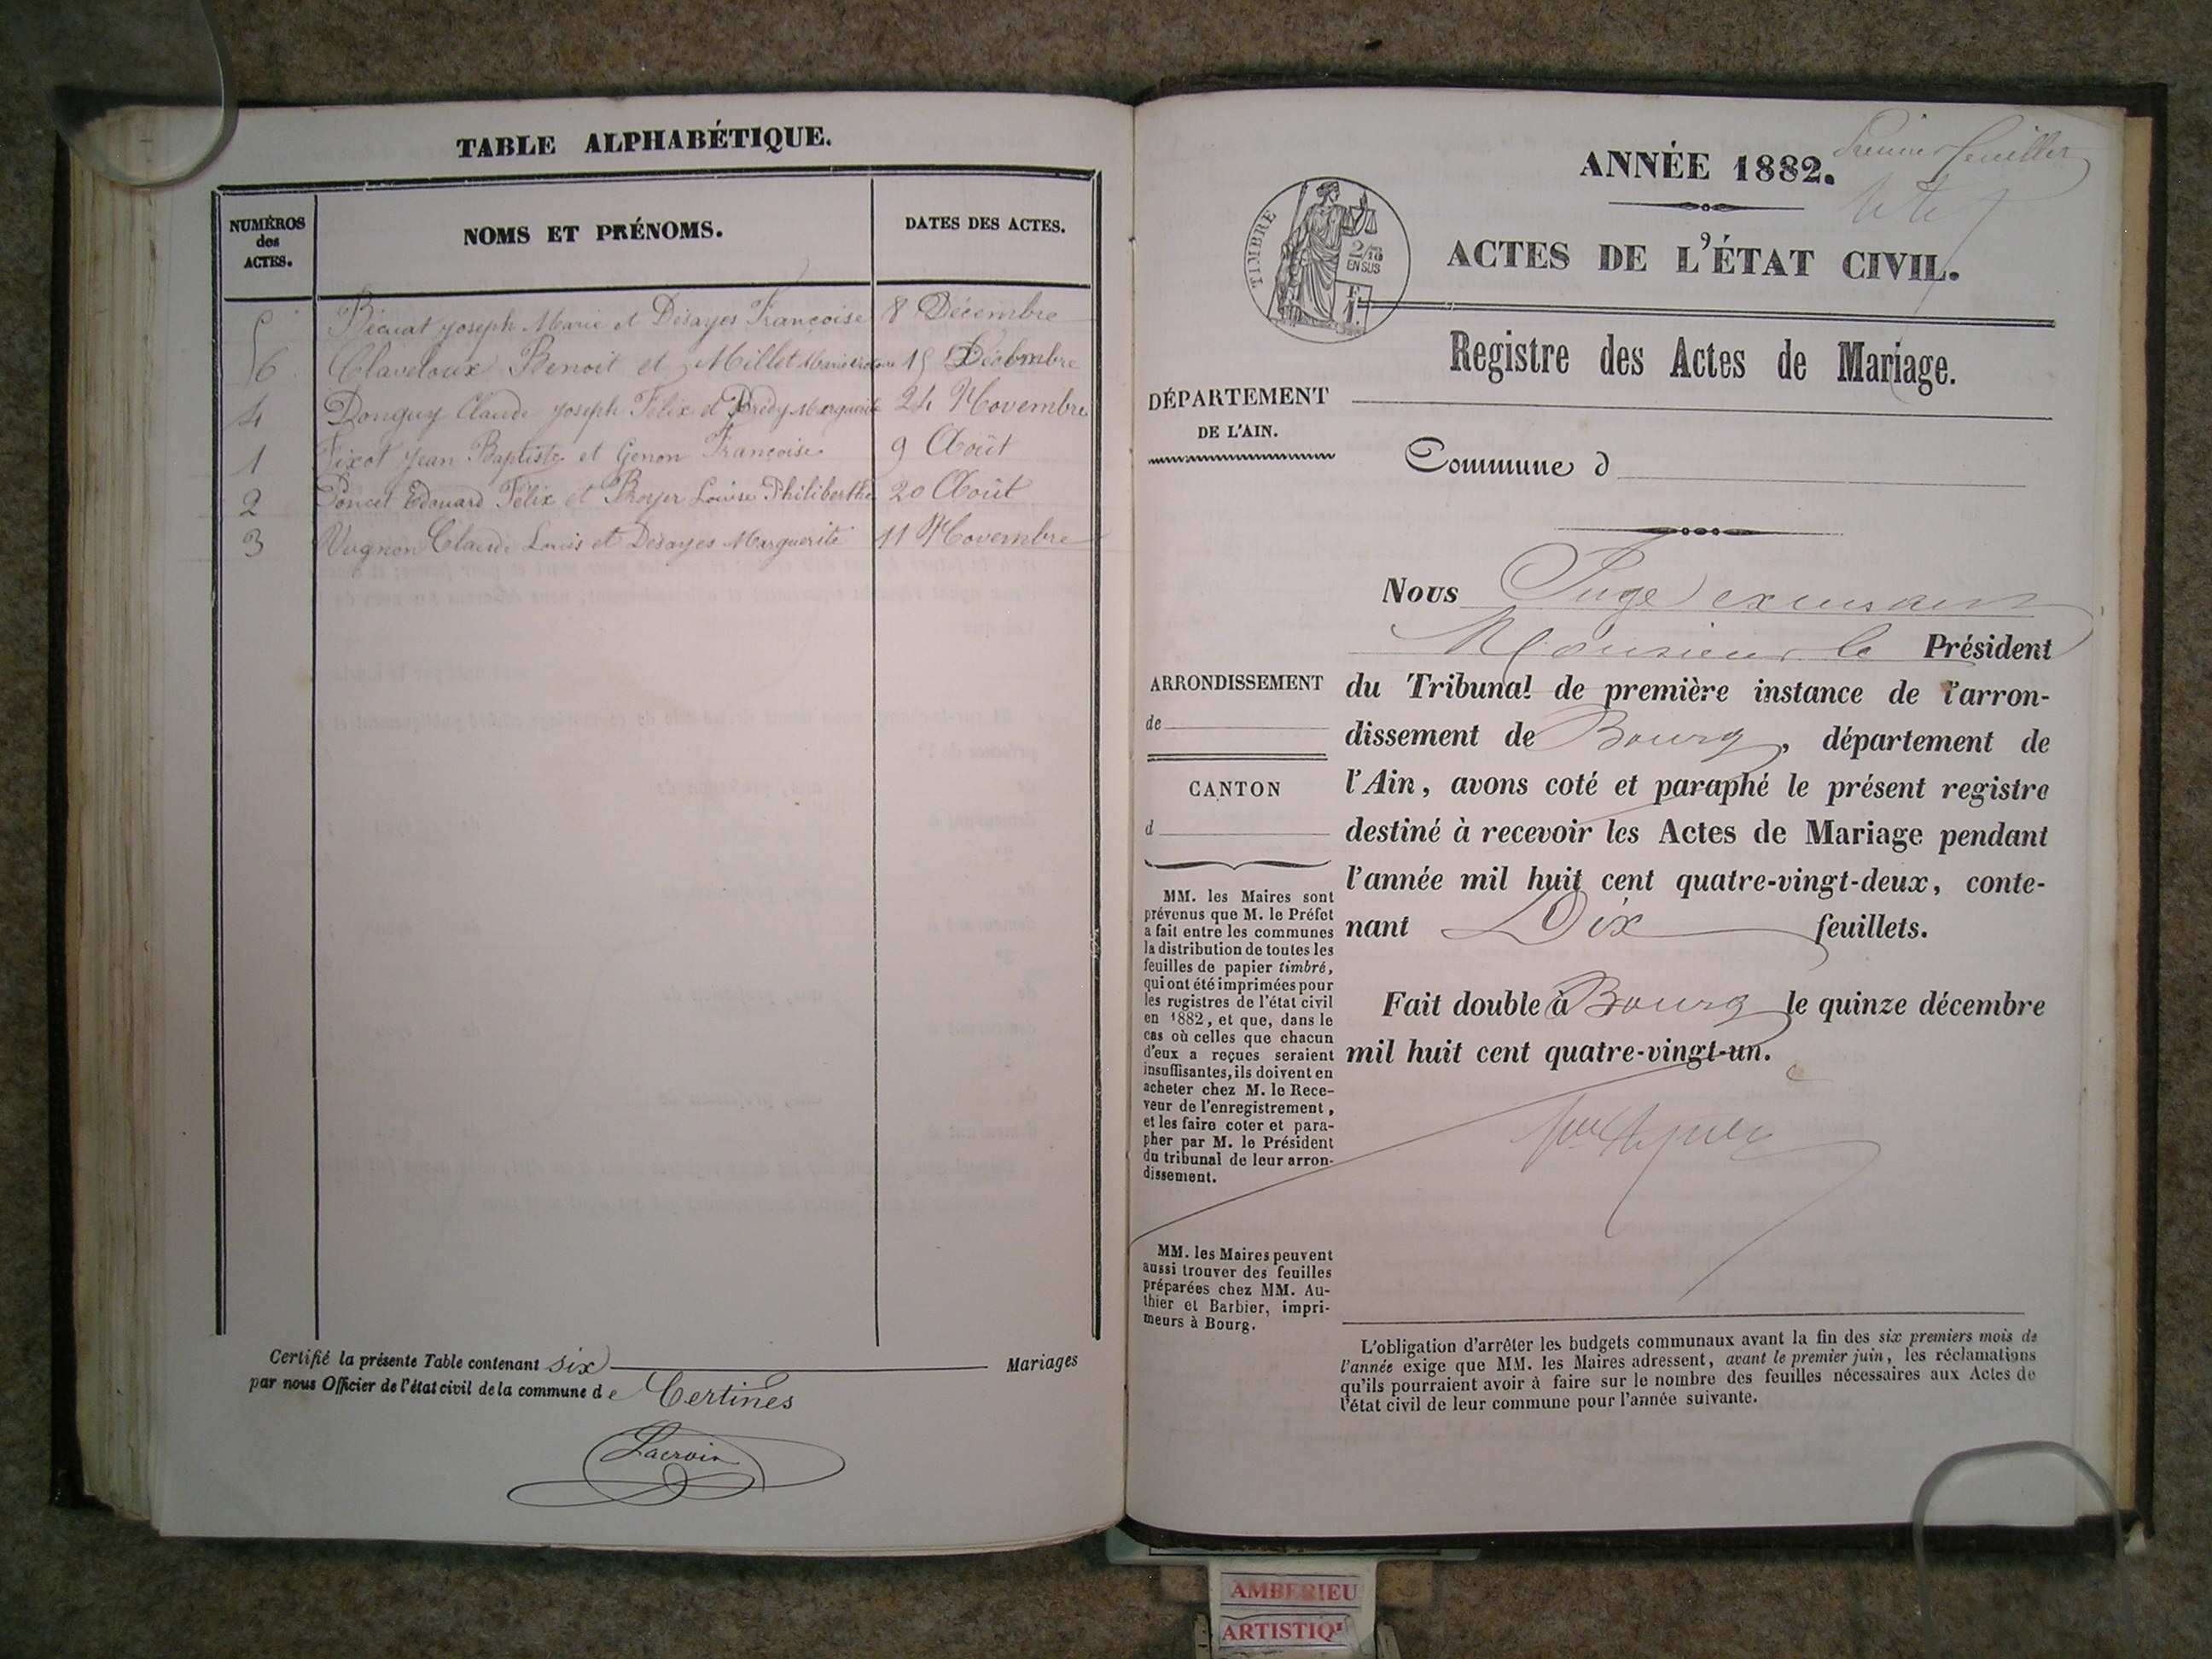 TABLE ALPHABÉTIQUE.
NUMÉROS
des
ACTES.
NOMS ET PRÉNOMS.
DATES DES ACTES.
5 Joseph Marie et Désayes Françoise 8 Décembre
6 Claveloux Benoit et Millet 15 Décembre
4 Donguy Claude Joseph Félix et Marguerite 24 Novembre
1 Fixot Jean Baptiste et Genon Françoise 9 Août
2 Poncet Edouard Félix et Royer Louise Philiberthe 20 Août
3 Vugnon Claude Louis et Désayes Marguerite 11 Novembre
Certifié la présente Table contenant six Mariages
par nous Officier de l'état civil de la commune de Certines
Lacroix
Premier feuillet
ANNÉE 1882.
TIMBRE
2/10
EN SUS
ACTES DE L'ÉTAT CIVIL.
Registre des Actes de Mariage.
DÉPARTEMENT
DE L'AIN.
Commune d
Nous Juge
Monsieur le Président
ARRONDISSEMENT
de
CANTON
d
du Tribunal de première instance de l'arron-
dissement de Bourg, département de
l'Ain, avons coté et paraphé le présent registre
destiné à recevoir les Actes de Mariage pendant
l'année mil huit cent quatre-vingt-deux, conte-
nant Dix feuillets.
Fait double à Bourg le quinze décembre
mil huit cent quatre-vingt-un.
MM. les Maires sont
prévenus que M. le Préfet
a fait entre les communes
la distribution de toutes les
feuilles de papier timbré,
qui ont été imprimées pour
les registres de l'état civil
en 1882, et que, dans le
cas où celles que chacun
d'eux a reçues seraient
insuffisantes, ils doivent en
acheter chez M. le Rece-
veur de l'enregistrement,
et les faire coter et para-
pher par M. le Président
du tribunal de leur arron-
dissement.
MM. les Maires peuvent
aussi trouver des feuilles
préparées chez MM. Au-
thier et Barbier, impri-
meurs à Bourg.
L'obligation d'arrêter les budgets communaux avant la fin des six premiers mois de
l'année exige que MM. les Maires adressent, avant le premier juin, les réclamations
qu'ils pourraient avoir à faire sur le nombre des feuilles nécessaires aux Actes de
l'état civil de leur commune pour l'année suivante.
AMBERIEU
ARTISTIQ